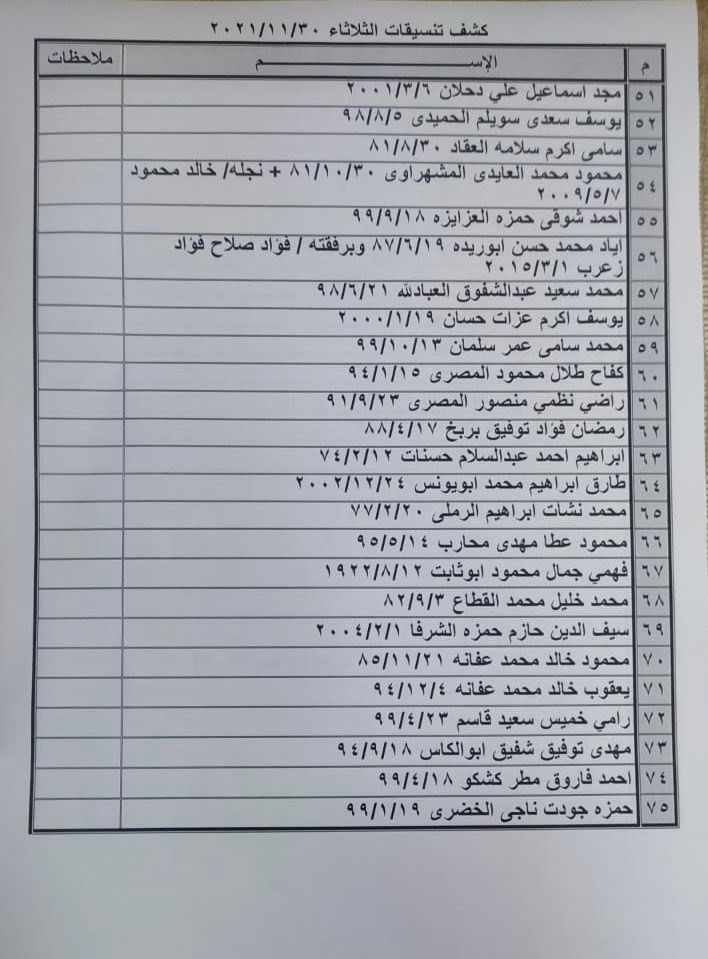 كشف تنسيقات الثلاثاء ٢٠٢١/١١/٣٠
م الإســـــــــم ملاحظات
٥١ مجد اسماعيل علي دحلان ٢٠٠١/٣/٦
٥٢ يوسف سعدى سويلم الحميدى ٩٨/٨/٥
٥٣ سامى اكرم سلامه العقاد ٨١/٨/٣٠
٥٤ محمود محمد العايدى المشهراوى ٨١/١٠/٣٠ + نجله/ خالد محمود
٢٠٠٩/٥/٧
٥٥ احمد شوقى حمزه العزايزه ٩٩/٩/١٨
٥٦ اياد محمد حسن ابوريده ٨٧/٦/١٩ وبرفقته / فؤاد صلاح فؤاد
زعرب ٢٠١٥/٣/١
٥٧ محمد سعيد عبدالشفوق العبادلله ٩٨/٦/٢١
٥٨ يوسف اكرم عزات حسان ٢٠٠٠/١/١٩
٥٩ محمد سامى عمر سلمان ٩٩/١٠/١٣
٦٠ كفاح طلال محمود المصرى ٩٤/١/١٥
٦١ راضي نظمي منصور المصرى ٩١/٩/٢٣
٦٢ رمضان فؤاد توفيق بربخ ٨٨/٤/١٧
٦٣ ابراهيم احمد عبدالسلام حسنات ٧٤/٢/١٢
٦٤ طارق ابراهيم محمد ابويونس ٢٠٠٢/١٢/٢٤
٦٥ محمد نشات ابراهيم الرملى ٧٧/٢/٢٠
٦٦ محمود عطا مهدى محارب ٩٥/٥/١٤
٦٧ فهمي جمال محمود ابوثابت ١٩٢٢/٨/١٢
٦٨ محمد خليل محمد القطاع ٨٢/٩/٣
٦٩ سيف الدين حازم حمزه الشرفا ٢٠٠٤/٢/١
٧٠ محمود خالد محمد عفانه ٨٥/١١/٢١
٧١ يعقوب خالد محمد عفانه ٩٤/١٢/٤
٧٢ رامي خميس سعيد قاسم ٩٩/٤/٢٣
٧٣ مهدى توفيق شفيق ابوالكاس ٩٤/٩/١٨
٧٤ احمد فاروق مطر كشكو ٩٩/٤/١٨
٧٥ حمزه جودت ناجى الخضرى ٩٩/١/١٩